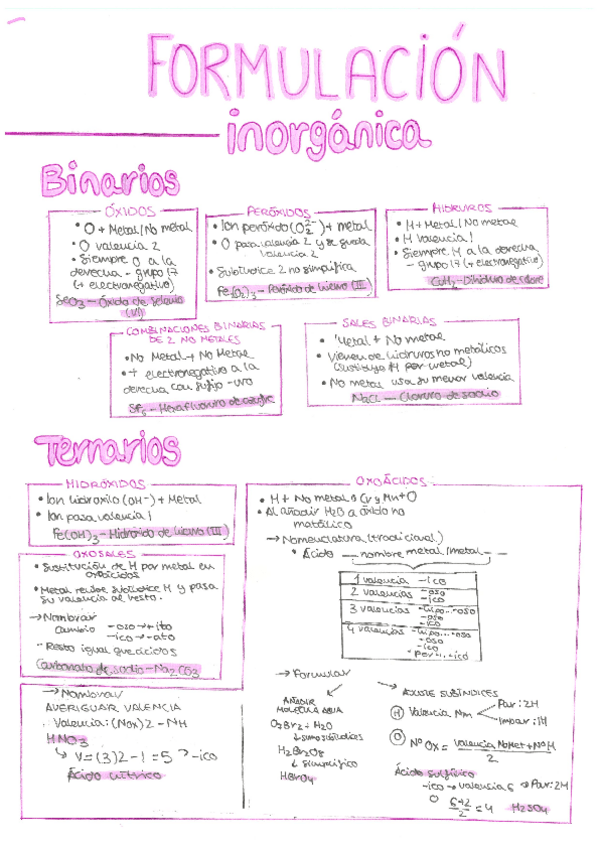 FORMULACIÓN
inorgánica
Binarios
ÓXIDOS
• O + Metal/No metal
• O valencia 2
• Siempre O a la
derecha - grupo 17
(+ electronegativo)
SeO3 - Óxido de selenio
(VI)
PERÓXIDOS
• Ion peróxido (O2 2-) + metal
• O pasa valencia 2 y se queda
valencia 2
• Subíndice 2 no simplifica
Fe2(O2)3 - Peróxido de hierro (III)
HIDRUROS
• H + Metal/No metal
• H valencia 1
• Siempre H a la derecha
- grupo 17 (+ electronegativo)
CuH2 - Dihidruro de cobre
COMBINACIONES BINARIAS
DE 2 NO METALES
• No Metal + No Metal
• + electronegativo a la
derecha con sufijo -uro
SF6 - Hexafluoruro de azufre
SALES BINARIAS
• Metal + No metal
• Vienen de hidruros no metálicos
(sustituyo H por metal)
• No metal usa su menor valencia
NaCl — Cloruro de sodio
Ternarios
HIDRÓXIDOS
• Ion hidroxilo (OH-) + Metal
• Ion pasa valencia 1
Fe(OH)3 - Hidróxido de hierro (III)
OXOSALES
• Sustitución de H por metal en
oxoácidos
• Metal recibe subíndice H y pasa
su valencia al resto.
→ Nombrar
Cambio -oso → -ito
-ico → -ato
- Resto igual que ácidos
Carbonato de sodio - Na2CO3
→ Nombrar
AVERIGUAR VALENCIA
Valencia: (NOx)2 - NH
HNO3
↳ V = (3)2 - 1 = 5 → -ico
Ácido nítrico
OXOÁCIDOS
• H + No metal o Cr y Mn + O
• Al añadir H2O a óxido no
metálico
→ Nomenclatura (tradicional)
• Ácido — nombre metal/metal —
1 valencia -ico
2 valencias -oso
-ico
3 valencias -hipo...-oso
-oso
-ico
4 valencias -hipo...-oso
-oso
-ico
-per...-ico
→ Formular
AÑADIR
MOLÉCULA AGUA
O7Br2 + H2O
↓ sumo subíndices
H2Br2O8
↓ simplifico
HBrO4
AJUSTE SUBÍNDICES
(H) Valencia Nm Par: 2H
Impar: 1H
(O) Nº Ox = valencia NoMet + Nº H
2
Ácido sulfúrico
-ico → valencia 6 → Par: 2H
O 6+2 = 4 H2SO4
2